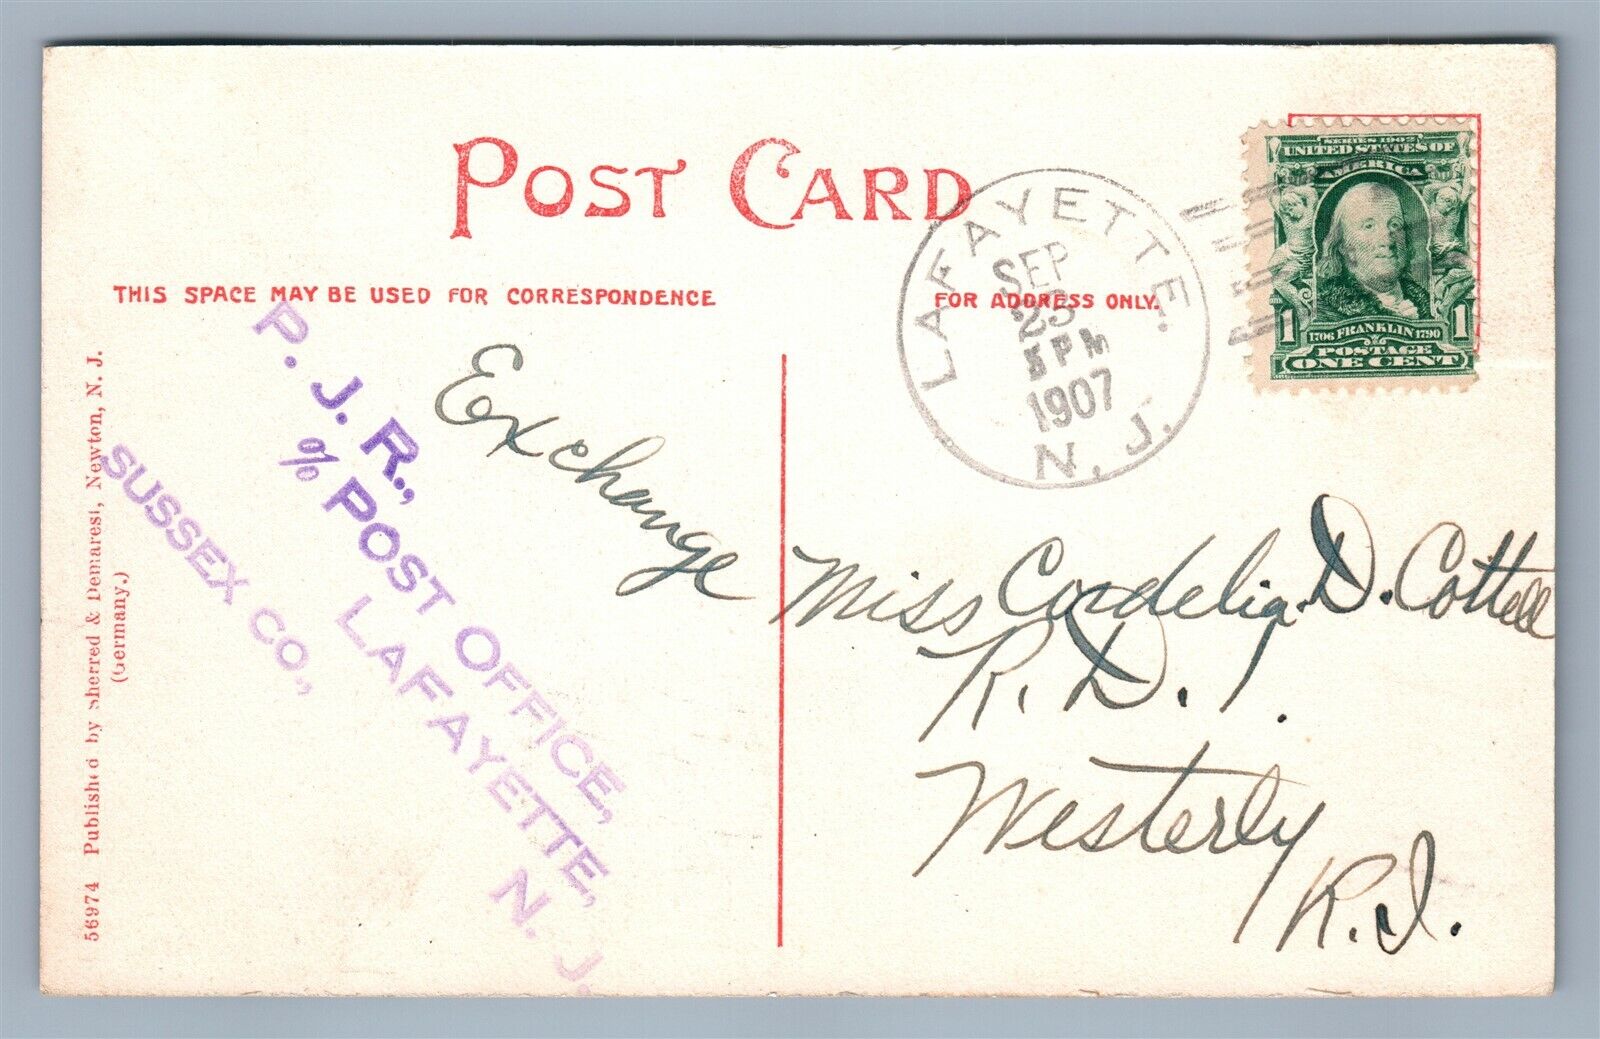 POST CARD
THIS SPACE MAY BE USED FOR CORRESPONDENCE
FOR ADDRESS ONLY.
LAFAYETTE.
SEP
23
5 PM
1907
N. J.
SERIES 1902
UNITED STATES OF
AMERICA
1706 FRANKLIN 1790
1 1
POSTAGE
ONE CENT
Exchange
P. J. R.,
% POST OFFICE,
LAFAYETTE,
SUSSEX CO.,
N. J.
Miss Cordelia. D. Cottell
R. D. 1.
Westerly
R. I.
56974 Published by Sherred & Demarest, Newton, N. J.
(Germany.)